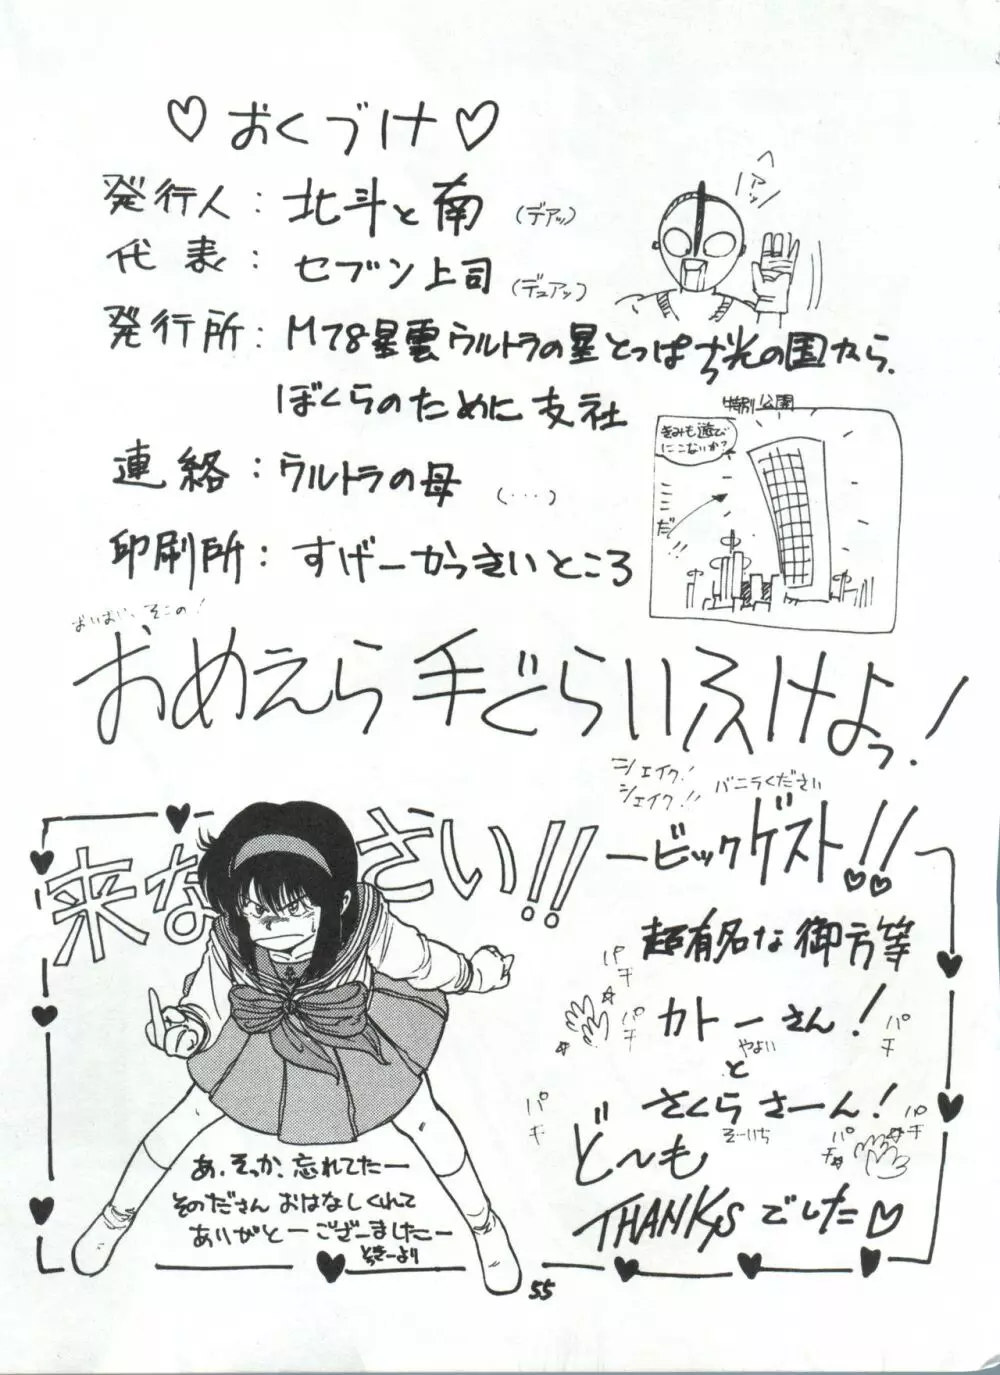 ♡おくづけ♡
発行人：北斗と南（デアッ）
代表：セブン上司（デュアッ）
発行所：M78星雲ウルトラの星とっぱち光の国なら、
ぼくらのために支社
連絡：ウルトラの母（・・・）
印刷所：すげーかっさいところ
特別公園
きみも遊び
にこないか？
ここだ!!
おいおい、そこの！
おめえら手ぐらいふけよっ！
シェイク！
シェイク!!
バニラください
ービックゲスト!!
来なさい!!
超有名な御方等
パチ
パチ
カトーさん！
やよい
パチ
と
さくらさーん！
そーいち
パチ
パチ
パチ
ど〜も
THANKSでした♡
あ、そっか、忘れてたー
そのださん おはなしくれて
ありがとーございましたー
とっきーより
55